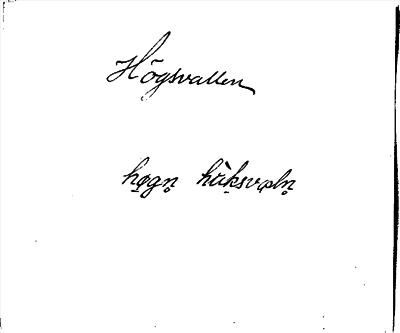 Högsvallen
høgn̥ hùksvaln̥